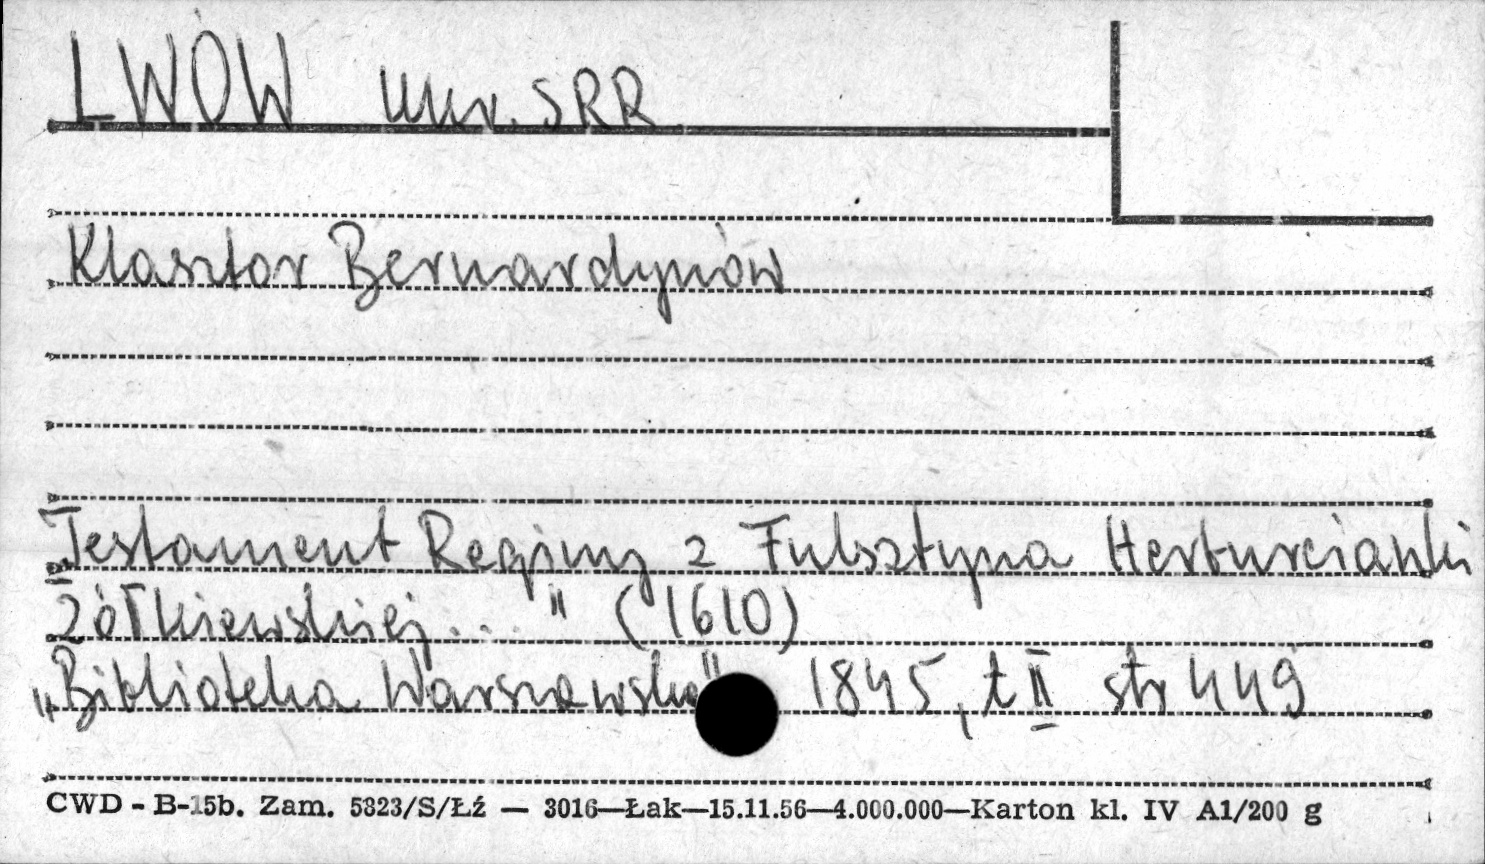 LWÓW Ukr. SRR
Klasztor Bernardynów
Testament Reginy z Fulsztyna Herburcianki
Żółkiewskiej..." (1610)
„Biblioteka Warszawska" 1845, t II str 449
CWD - B-15b. Zam. 5823/S/Łź — 3016—Łak—15.11.56—4.000.000—Karton kl. IV A1/200 g